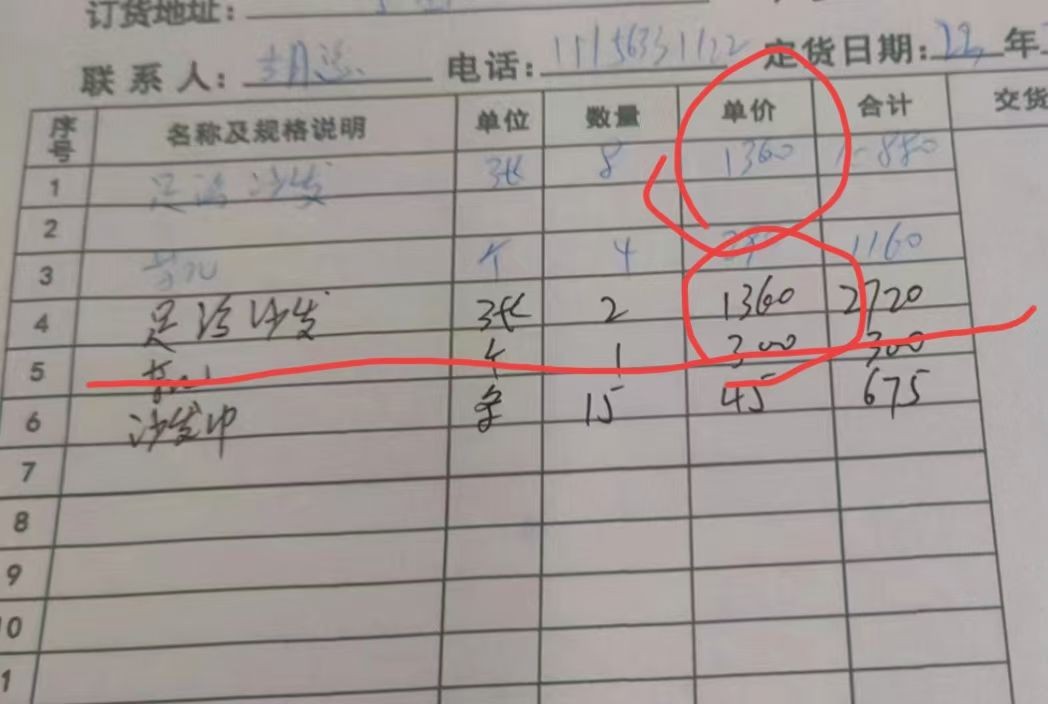 订货地址:
联系人: 电话: 定货日期: 22 年
序号 名称及规格说明 单位 数量 单价 合计 交货
1 足浴沙发 张 8 1360 10880
2
3 个 4 1160
4 足浴沙发 张 2 1360 2720
5 个 1 300 300
6 沙发巾 条 15 45 675
7
8
9
10